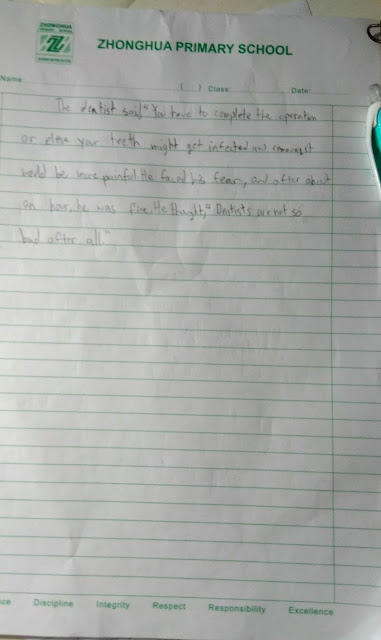 ZHONGHUA
PRIMARY SCHOOL
ZHONGHUA PRIMARY SCHOOL
Name
( ) Class: Date:
The dentist said, "You have to complete the operation
or else your teeth might get infected and
would be more painful. He faced his fear, and after about
an hour, he was fine. He thought, "Dentists are not so
bad after all."
ce Discipline Integrity Respect Responsibility Excellence